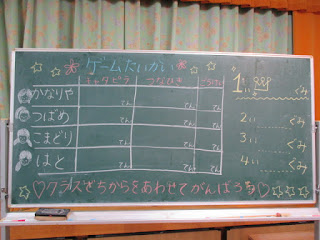 ゲームたいかい
キャタピラ つなひき ごうけい
かなりや てん てん てん
つばめ てん てん てん
こまどり てん てん てん
はと てん てん てん
1い くみ
2い くみ
3い くみ
4い くみ
♡クラスでちからをあわせてがんばろう♡